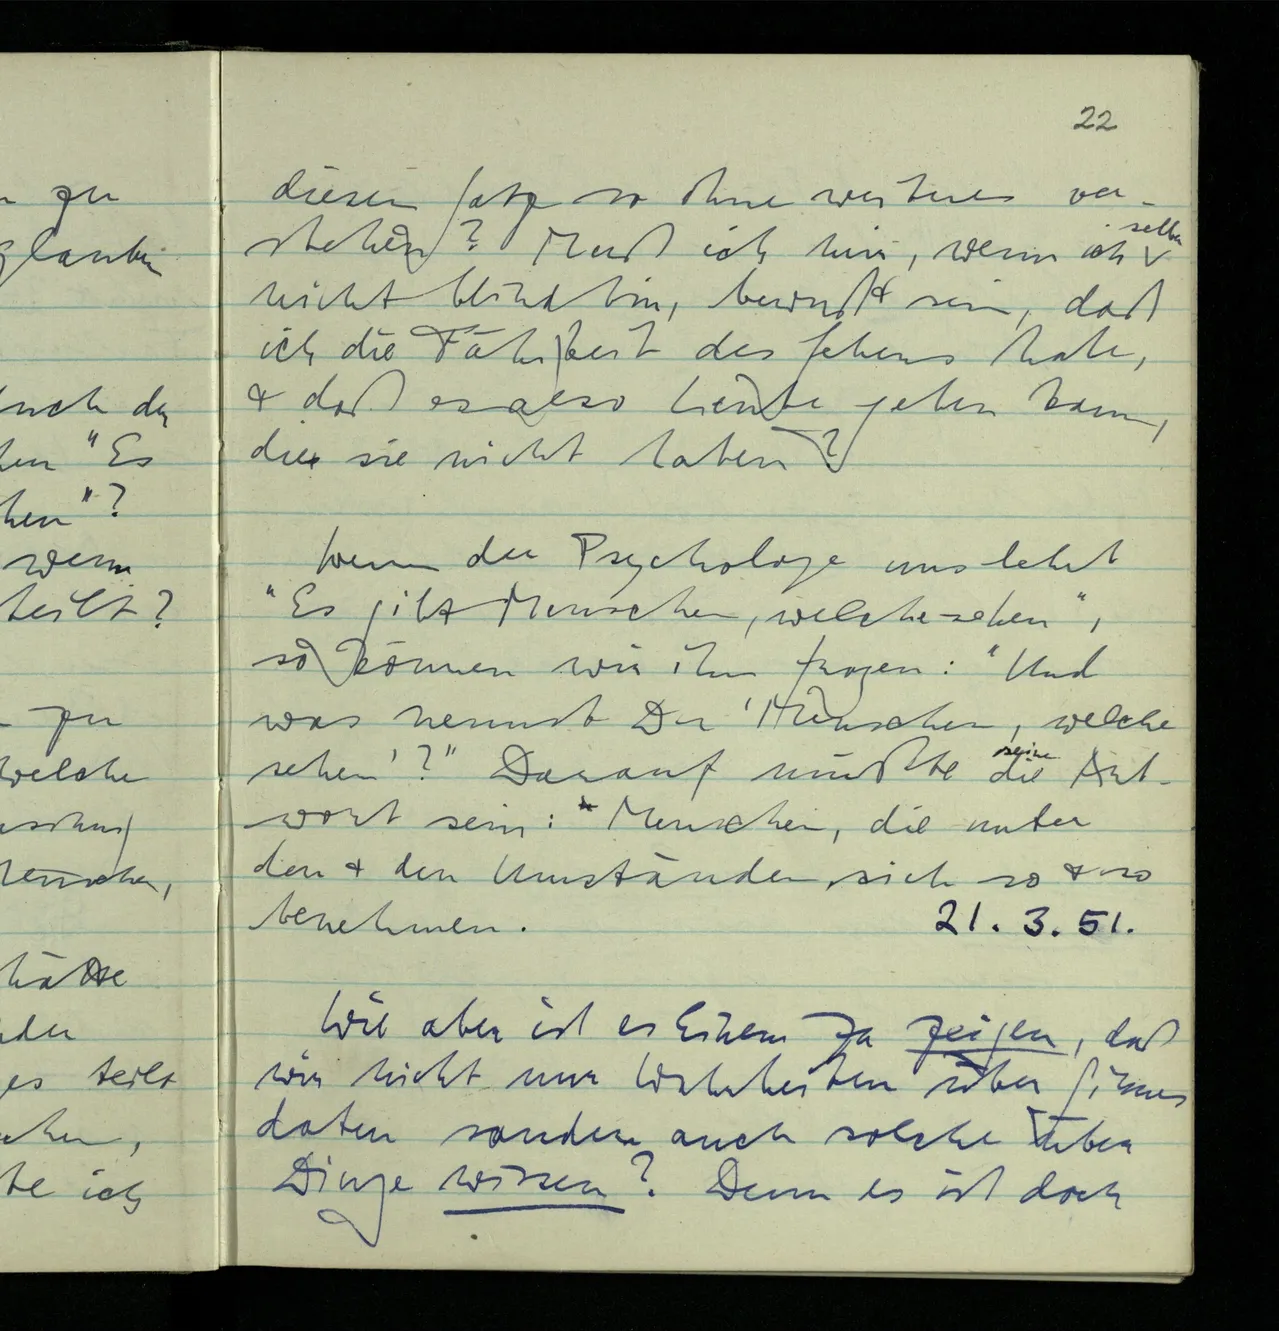 n zu
glauben
uch der
hen "Es
hen"?
wenn
teilt?
- zu
welche
Menschen,
hätte
nder
es teilt
chen,
te ich
22
diesen Satz so ohne weiteres ver-
stehen? Muß ich hier, wenn ich selber
nicht blind bin, bewußt sein, daß
ich die Fähigkeit des Sehens habe,
& daß es also Leute geben kann,
die sie nicht haben?
Wenn der Psychologe uns lehrt
"Es gibt Menschen, welche sehen",
so können wir ihn fragen: "Und
was nennst Du 'Menschen, welche
sehen'?" Darauf müßte die seine Ant-
wort sein: "Menschen, die unter
den & den Umständen sich so & so
benehmen.
21. 3. 51.
Wie aber ist es Einem zu zeigen, daß
wir nicht nur Wahrheiten über Sinnes
daten sondern auch solche über
Dinge wissen? Denn es ist doch